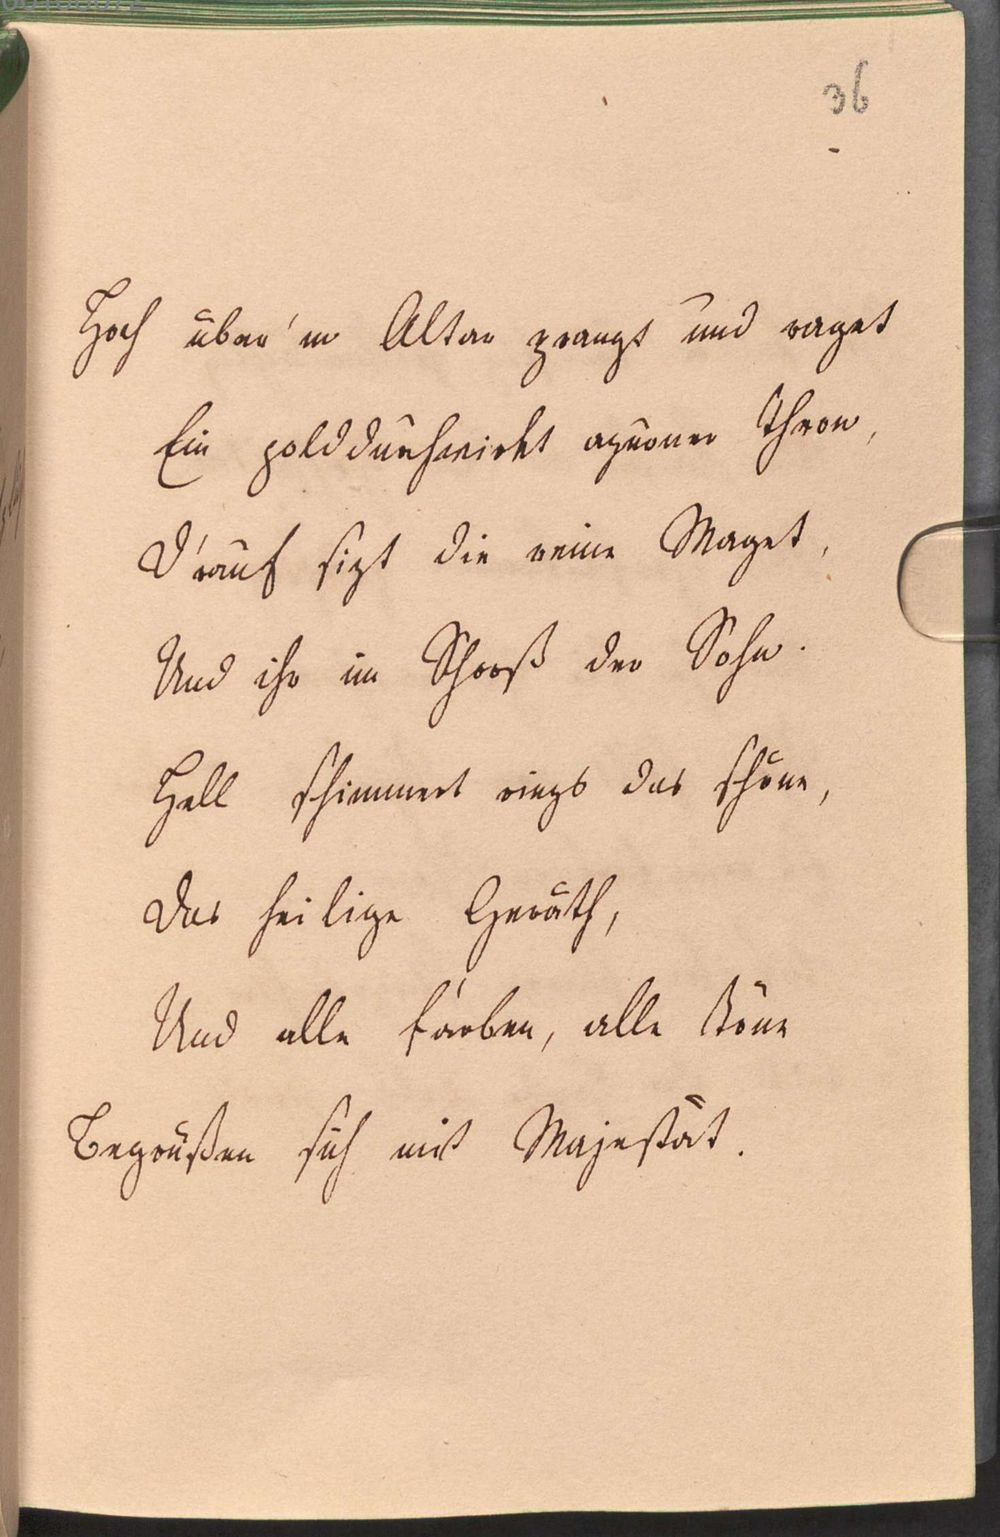 36
Hoch über'm Altar prangt und raget
Ein golddurchwirkt azurner Thron,
D'rauf sizt die reine Maget,
Und ihr im Schooß der Sohn.
Hell schimmert rings das schöne,
Das heilige Geräth,
Und alle Farben, alle Töne
Begrüßen sich mit Majestät.